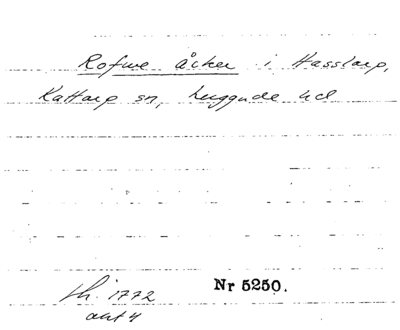 Rofwe åcker i Hasslarp,
Kattarp sn, Luggude hd
Nr 5250.
lh. 1772
akt 4